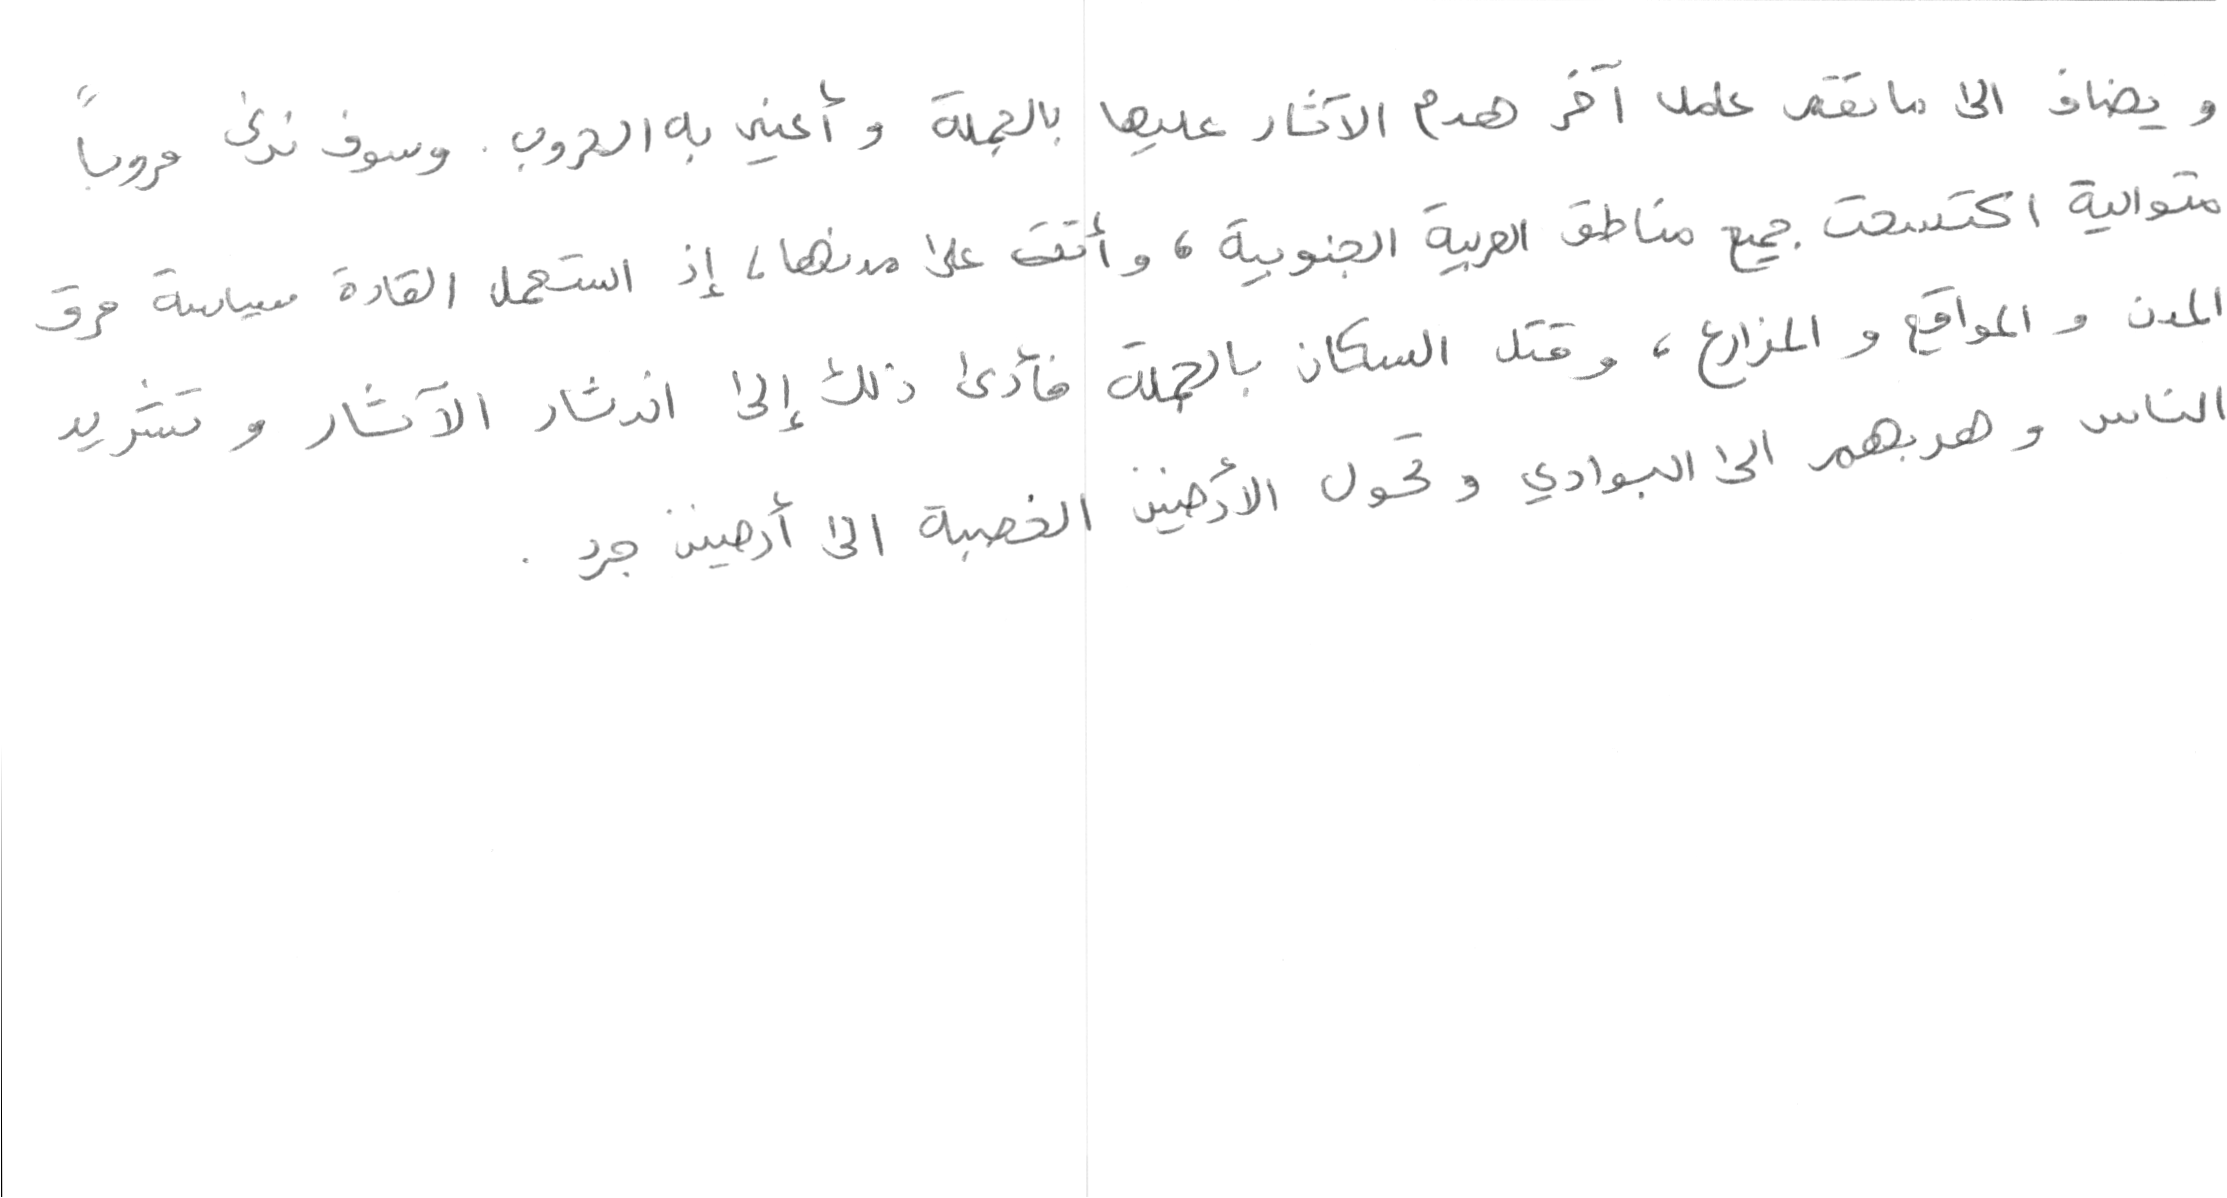 و يضاف الى ما تقدم عامل آخر هدم الآثار عليها بالجملة و أعني به الحروب . وسوف نرى حروباً
متوالية اكتسحت جميع مناطق العربية الجنوبية ، و أتت على مدنها ، إذ استعمل القادة سياسة حرق
المدن و المواقع و المزارع ، و قتل السكان بالجملة فأدى ذلك إلى اندثار الآثار و تشريد
الناس و هربهم الى البوادي و تحول الأرضين الخصبة الى أرضين جرد .